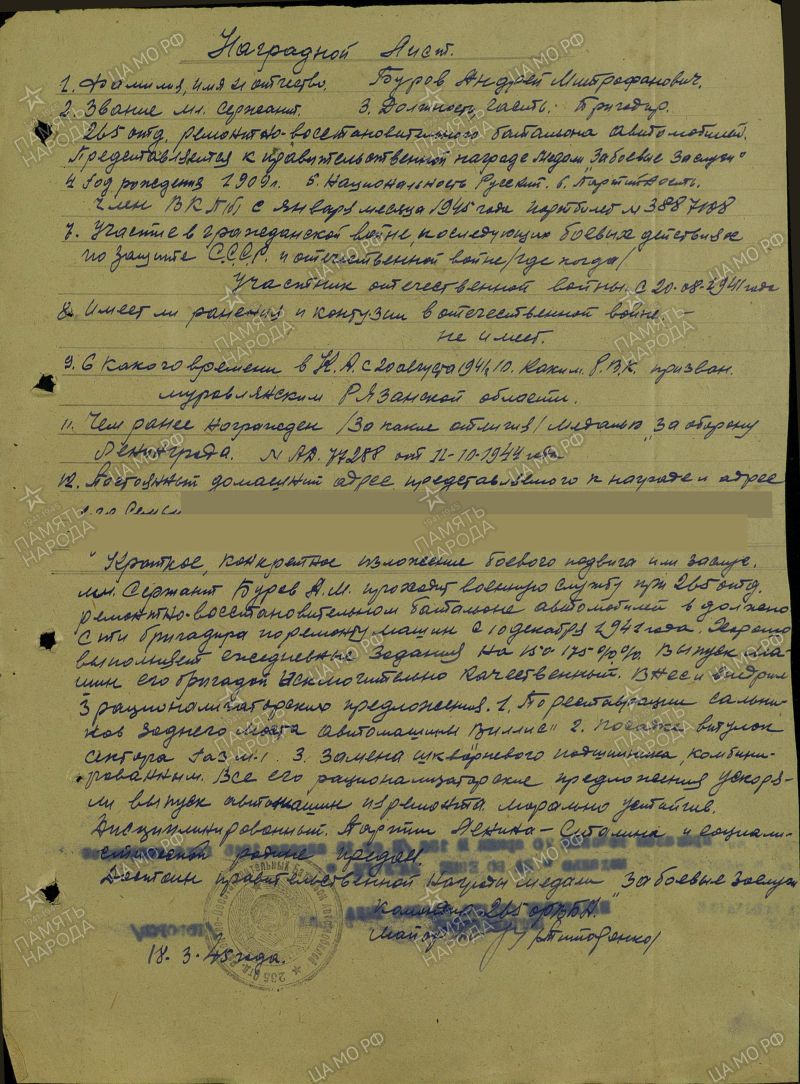 Наградной Лист.
1. Фамилия, имя и отчество. Буров Андрей Митрофанович.
2. Звание мл. сержант 3. Должность, часть. Бригадир.
265 отд. ремонтно-восстановительного батальона автомобилей.
Представляется к правительственной награде медали "За боевые заслуги"
4. Год рождения 1909 г. 5. Национальность Русский. 6. Партийность.
Член ВКП(б) с января месяца 1945 года партбилет №
7. Участие в гражданской войне, последующих боевых действиях
по защите С.С.С.Р. и отечественной войне /где когда/
Участник отечественной войны с 20-08-1941 года
8. Имеет ли ранения и контузии в отечественной войне. -
не имеет.
9. С какого времени в К.А. с 20 августа 1941, 10. Каким Р.В.К. призван.
Муравлянским Рязанской области.
11. Чем ранее награжден /За какие отличия/ медалью "За оборону
Ленинграда. № АД. 77288 от 11-10-1944 года
12. Постоянный домашний адрес представляемого к награде и адрес
его семьи
"Краткое, конкретное изложение боевого подвига или заслуг.
мл. Сержант Буров А.М. проходит военную службу при 265 отд.
ремонтно-восстановительном батальоне автомобилей в должно
сти бригадира по ремонту машин с 10 декабря 1941 года. Хорошо
выполняет ежедневные задания на 150-175%%. Выпуск ма-
шин его бригадой исключительно качественный. Внес и внедрил
3 рационализаторских предложения. 1. Реставрации сальни-
ков заднего моста автомашины Виллис" 2. Посадка втулок
сектора Газ.М.1 3. Замена шкворневого подшипника, комбини-
рованным. Все его рационализаторские предложения ускоря-
ли выпуск автомашин из ремонта. Морально устойчив.
Дисциплинированный. Партии Ленина-Сталина и социали-
стической родине предан.
Достоин правительственной Награды медали "За боевые заслуги
Командир 265 орвбА.
Майор /Титоренко/
18.3.45 года.
ПАМЯТЬ НАРОДА
ЦАМО.РФ